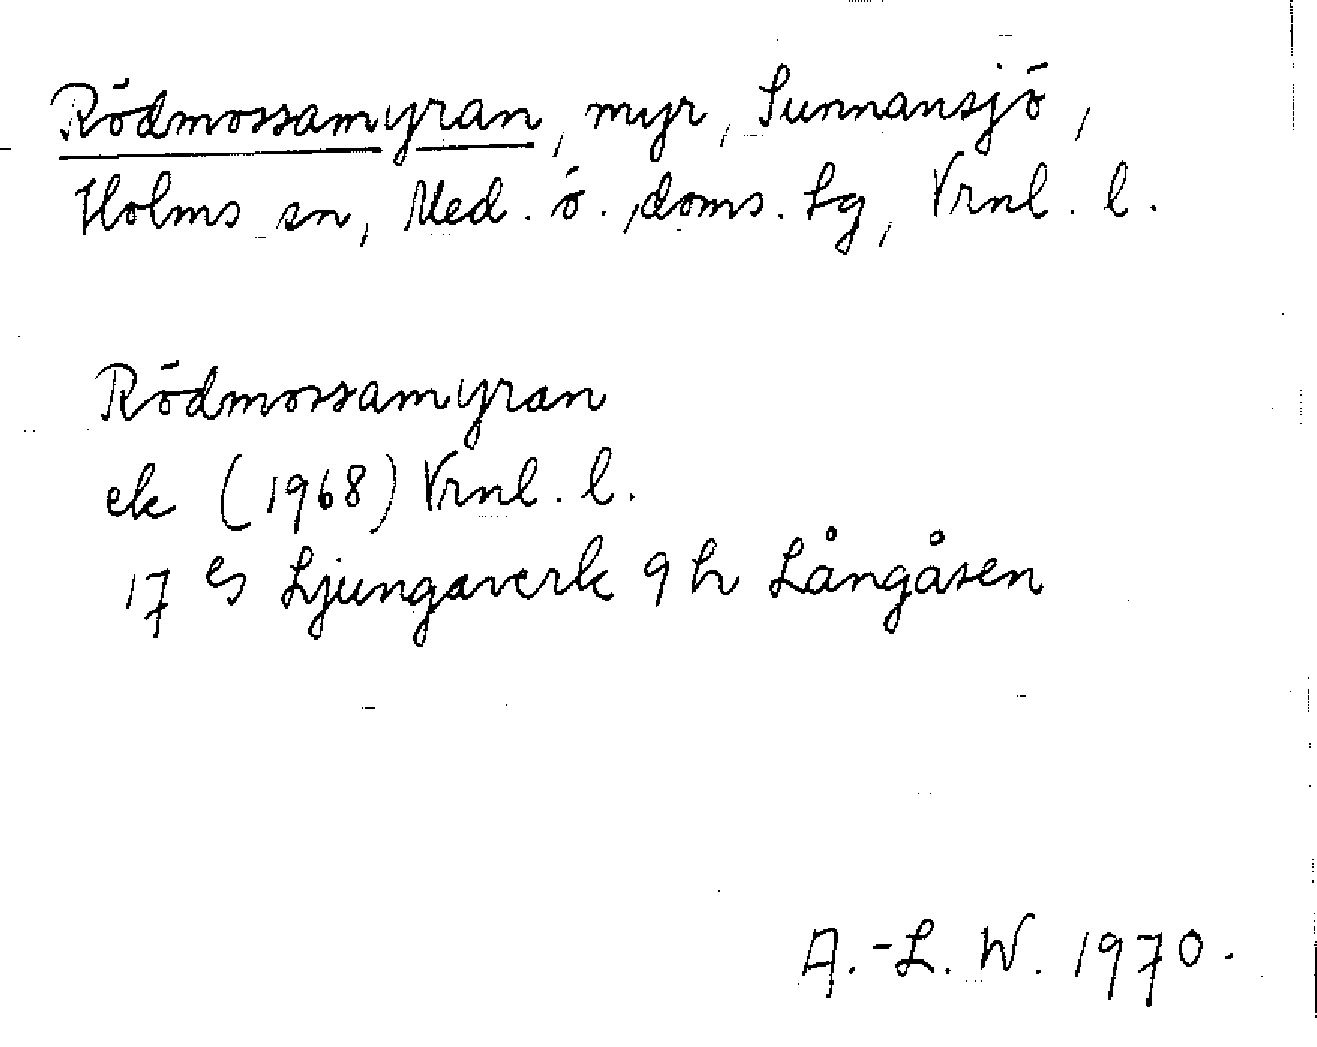 Rödmossamyran, myr, Sunnansjö,
Holms sn, Med. ö. doms. lg, Vrnl. l.
Rödmossamyran
ek (1968) Vrnl. l.
17 es Ljungaverk 9 h Långåsen
A.-L. W. 1970.